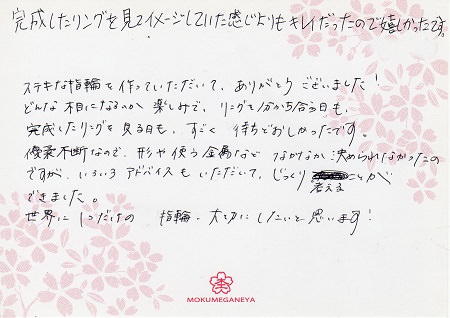 完成したリングを見てイメージしていた感じよりもキレイだったので嬉しかったです。
ステキな指輪を作っていただいて、ありがとうございました!
どんな木目になるのか楽しみで、リングを分かち合う日も、
完成したリングを見る日も、すごく待ちどおしかったです。
優柔不断なので、形や使う金属など なかなか決められなかったの
ですが、いろいろアドバイスもいただいて、じっくり考えることが
できました。
世界に1つだけの 指輪、大切にしたいと思います!
MOKUMEGANEYA